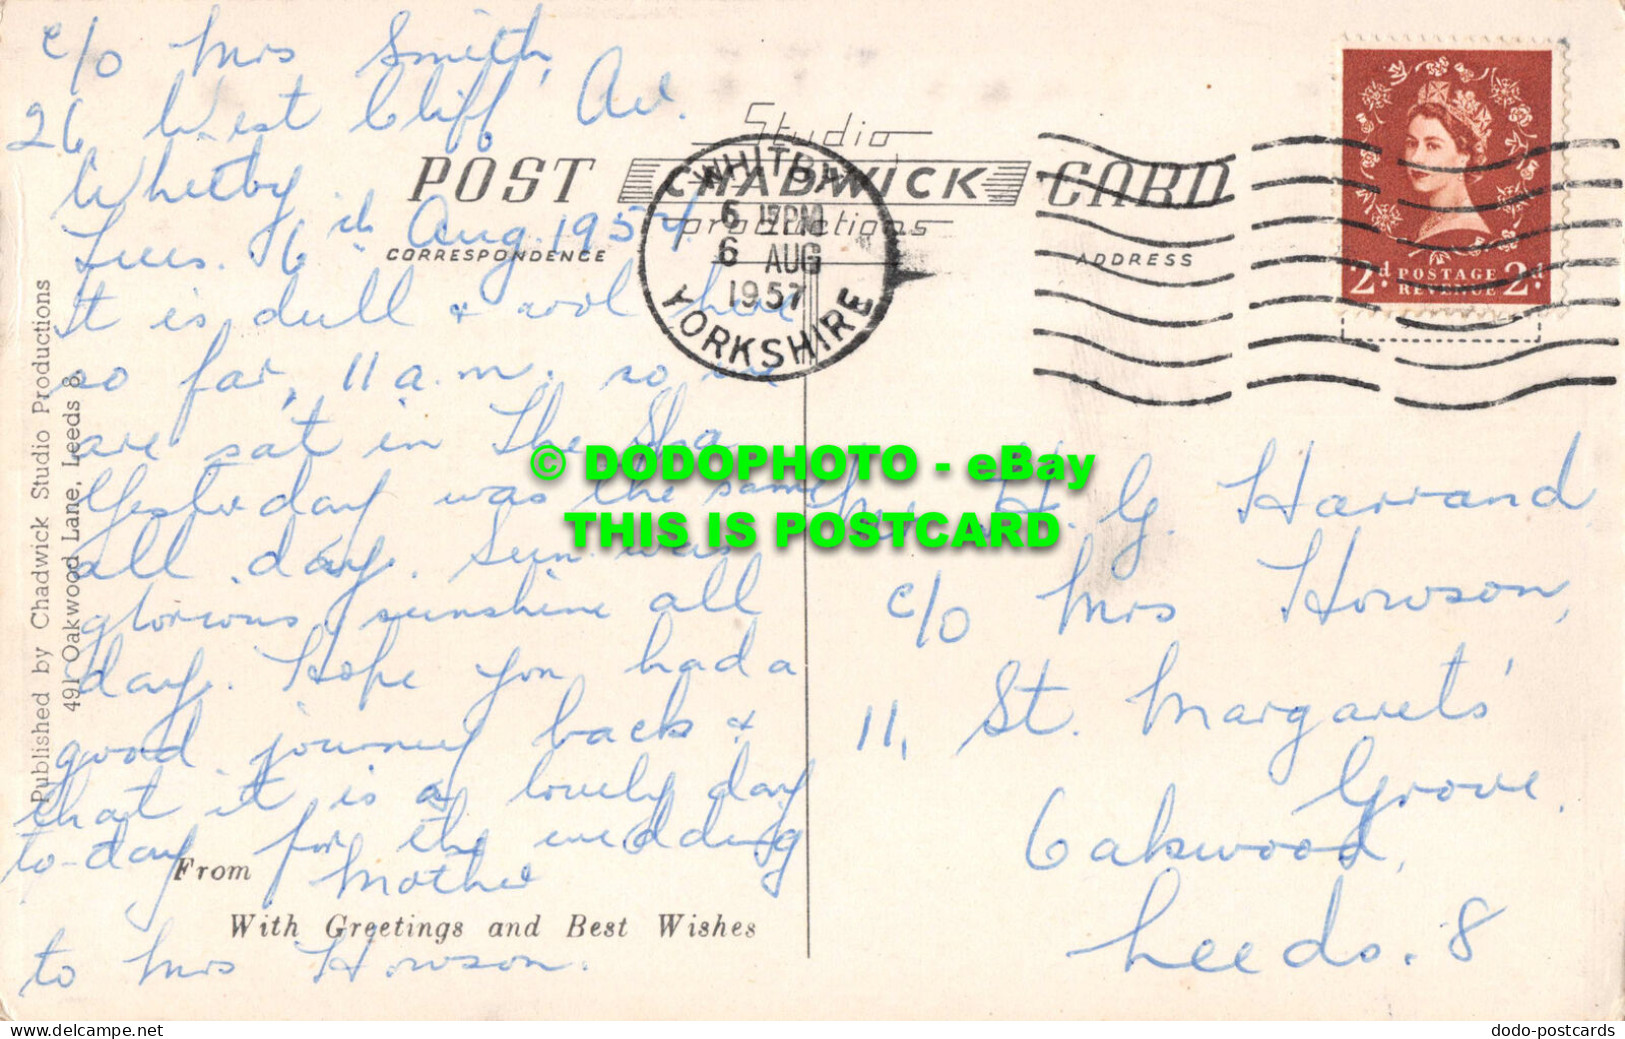 c/o Mrs Smith,
26 West Cliff Av.
Whitby
Tues. 6th Aug. 1957.
It is dull & cool here
so far, 11 a.m. so we
are sat in The Spa
Yesterday was the same
all day. Sun. was
glorious, sunshine all
day. Hope you had a
good journey back &
that it is a lovely day
to-day for the wedding
From Mother
With Greetings and Best Wishes
to Mrs Howson.
Published by Chadwick Studio Productions
491 Oakwood Lane, Leeds 8
Studio
POST CHADWICK CARD
productions
CORRESPONDENCE
ADDRESS
WHITBY
6 PM
6 AUG
1957
YORKSHIRE
2d POSTAGE 2d
REVENUE
© DODOPHOTO - eBay
THIS IS POSTCARD
H. G. Harrand
c/o Mrs Howson,
11, St. Margaret's
Grove,
Oakwood,
Leeds. 8
Website: www.delcampe.net
dodo-postcards